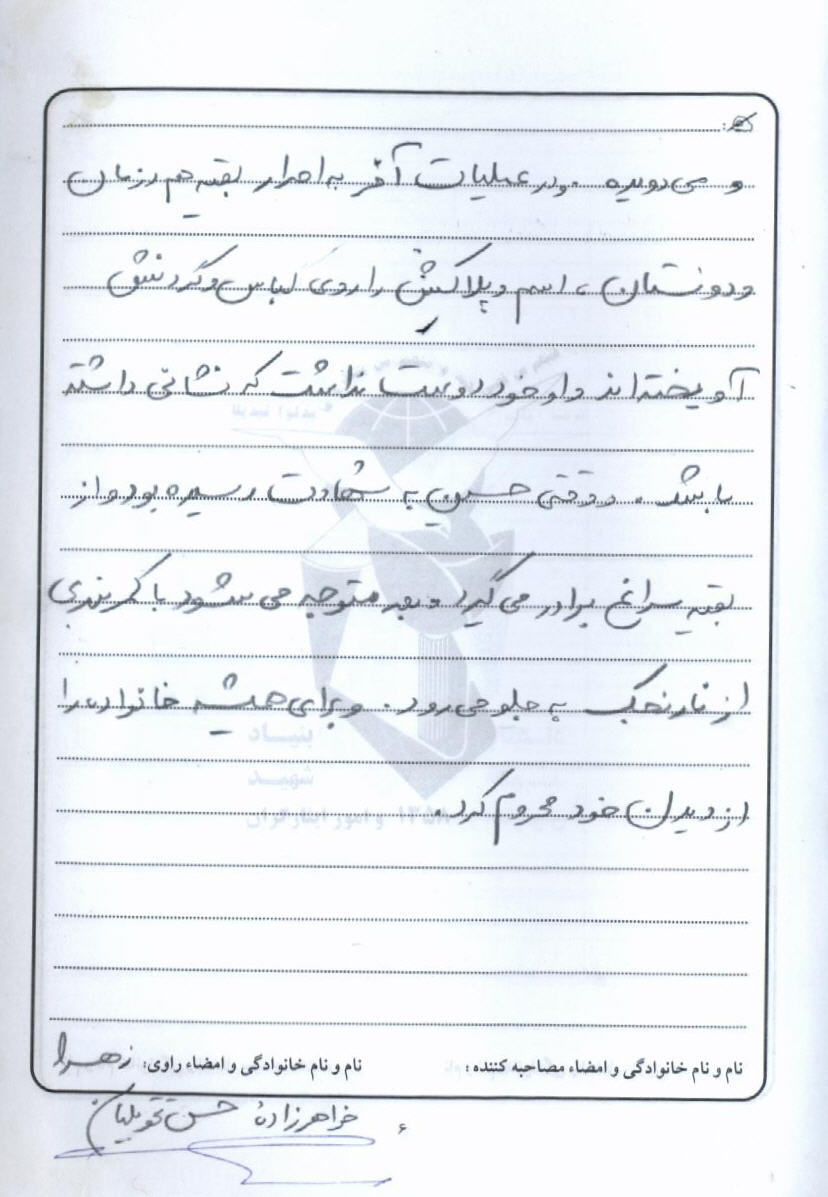 و می دویده. و در عملیات آخر به اصرار بقیه هم رزمان
و دوستان، اسم و پلاکش را روی لباس و گردنش
آویخته اند و او خود دوست نداشت که نشانی داشته
باشد. و وقتی حسین به شهادت رسیده بود و از
بقیه سراغ برادر می گیرد و بعد متوجه می شود با کمربندی
از نارنجک به جلو می رود. و برای همیشه خانواده را
از دیدن خود محروم کرد.
بنیاد
شهید
و امور ایثارگران ۱۳۵۸
نام و نام خانوادگی و امضاء مصاحبه کننده :
نام و نام خانوادگی و امضاء راوی: زهرا
خواهرزادهٔ حسن
۶